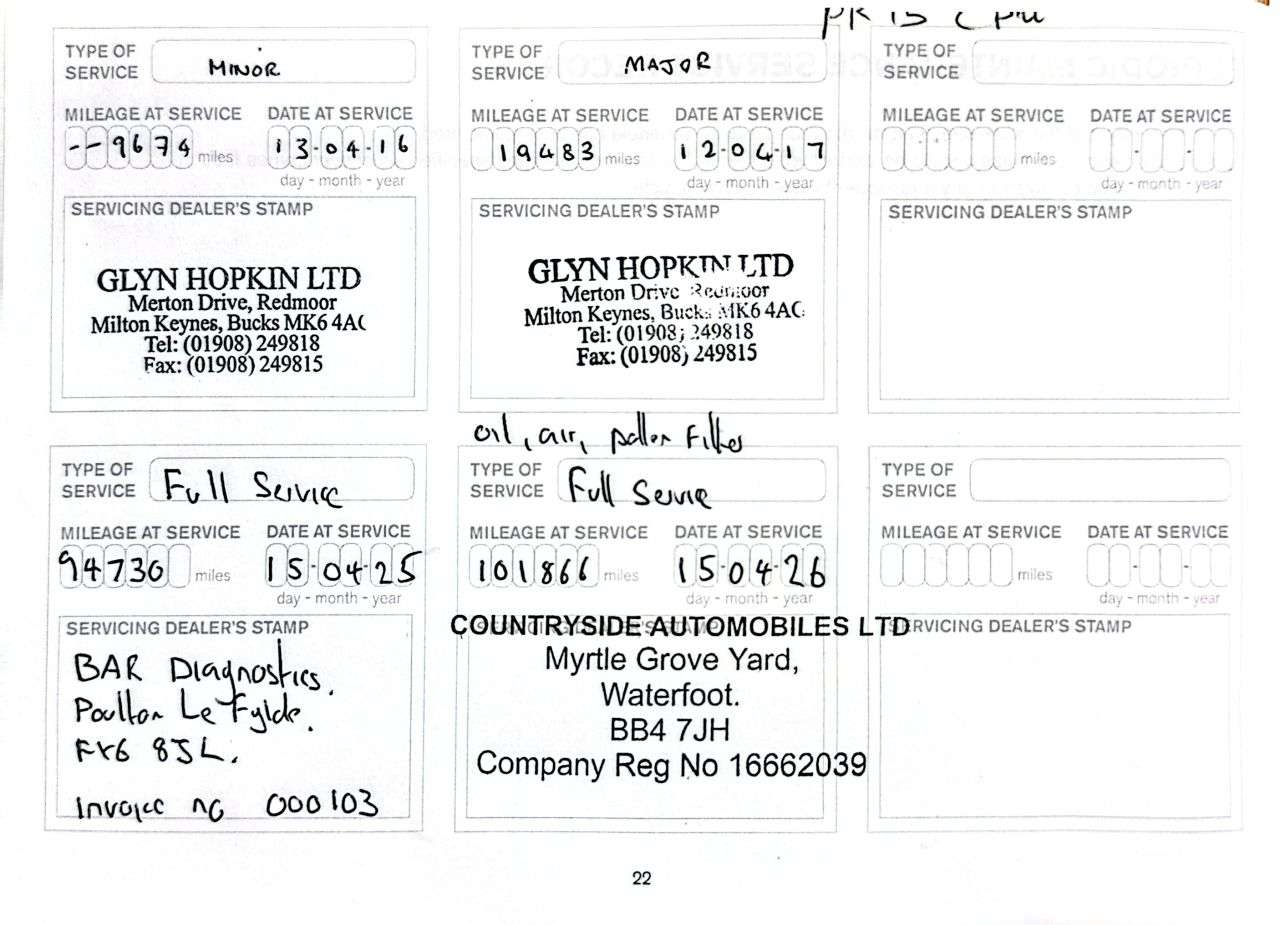 TYPE OF SERVICE MINOR
MILEAGE AT SERVICE DATE AT SERVICE
--9674 miles 13-04-16
day - month - year
SERVICING DEALER'S STAMP
GLYN HOPKIN LTD
Merton Drive, Redmoor
Milton Keynes, Bucks MK6 4A(
Tel: (01908) 249818
Fax: (01908) 249815
TYPE OF SERVICE MAJOR
MILEAGE AT SERVICE DATE AT SERVICE
19483 miles 12-04-17
day - month - year
SERVICING DEALER'S STAMP
GLYN HOPKIN LTD
Merton Drive Redmoor
Milton Keynes, Bucks MK6 4AC
Tel: (01908) 249818
Fax: (01908) 249815
TYPE OF SERVICE
MILEAGE AT SERVICE DATE AT SERVICE
miles
day - month - year
SERVICING DEALER'S STAMP
TYPE OF SERVICE Full Service
MILEAGE AT SERVICE DATE AT SERVICE
94730 miles 15-04-25
day - month - year
SERVICING DEALER'S STAMP
BAR Diagnostics.
Poulton Le Fylde.
FY6 8JL.
Invoice no 000103
oil, air, pollen Filter
TYPE OF SERVICE Full Service
MILEAGE AT SERVICE DATE AT SERVICE
101866 miles 15-04-26
day - month - year
SERVICING DEALER'S STAMP
COUNTRYSIDE AUTOMOBILES LTD
Myrtle Grove Yard,
Waterfoot.
BB4 7JH
Company Reg No 16662039
TYPE OF SERVICE
MILEAGE AT SERVICE DATE AT SERVICE
miles
day - month - year
SERVICING DEALER'S STAMP
22